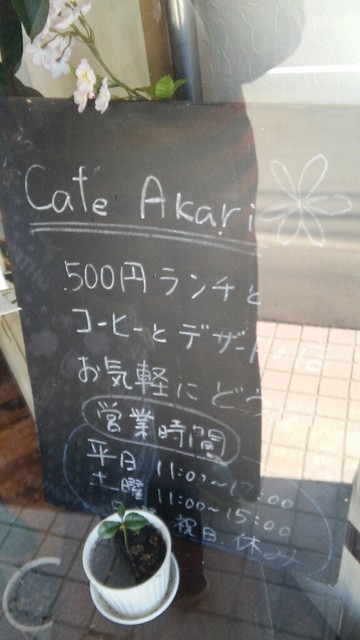 Cafe Akari
500円ランチと
コーヒーとデザートの店
お気軽にどう
営業時間
平日 11:00~17:00
土曜 11:00~15:00
祝日.休み